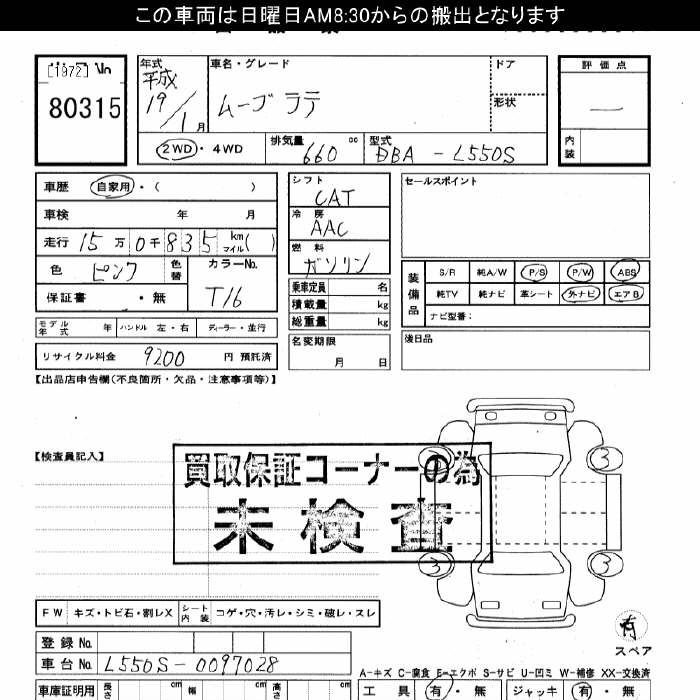 この車両は日曜日AM8:30からの搬出となります
[1972]
80315
年式
平成
19/1月
車名・グレード
ムーヴ ラテ
ドア
形状
評価点
内装
2WD・4WD
排気量
660 cc
型式
DBA - L550S
車歴 自家用・( )
車検 年 月
走行 15万0千835 km マイル( )
色 ピンク 色替
カラーNo.
T16
保証書 ・無
モデル年式 年 ハンドル 左・右 ディーラー・並行
リサイクル料金 9200 円 預託済
シフト
CAT
冷房
AAC
燃料
ガソリン
乗車定員 名
積載量 kg
総重量 kg
名変期限
月 日
セールスポイント
装備品
S/R 純A/W P/S P/W ABS
純TV 純ナビ 革シート 外ナビ エアB
ナビ型番:
後日品
【出品店申告欄(不良箇所・欠品・注意事項等)】
【検査員記入】
買取保証コーナーの為
未検査
3 3
3 3
有
スペア
FW キズ・トビ石・割レX シート内装 コゲ・穴・汚レ・シミ・破レ・スレ
登録No.
車台No. L550S-0097028
A-キズ C-腐食 E-エクボ S-サビ U-凹ミ W-補修 XX-交換済
車庫証明用 長さ cm 幅 cm 高さ cm
工具 有・無 ジャッキ 有・無